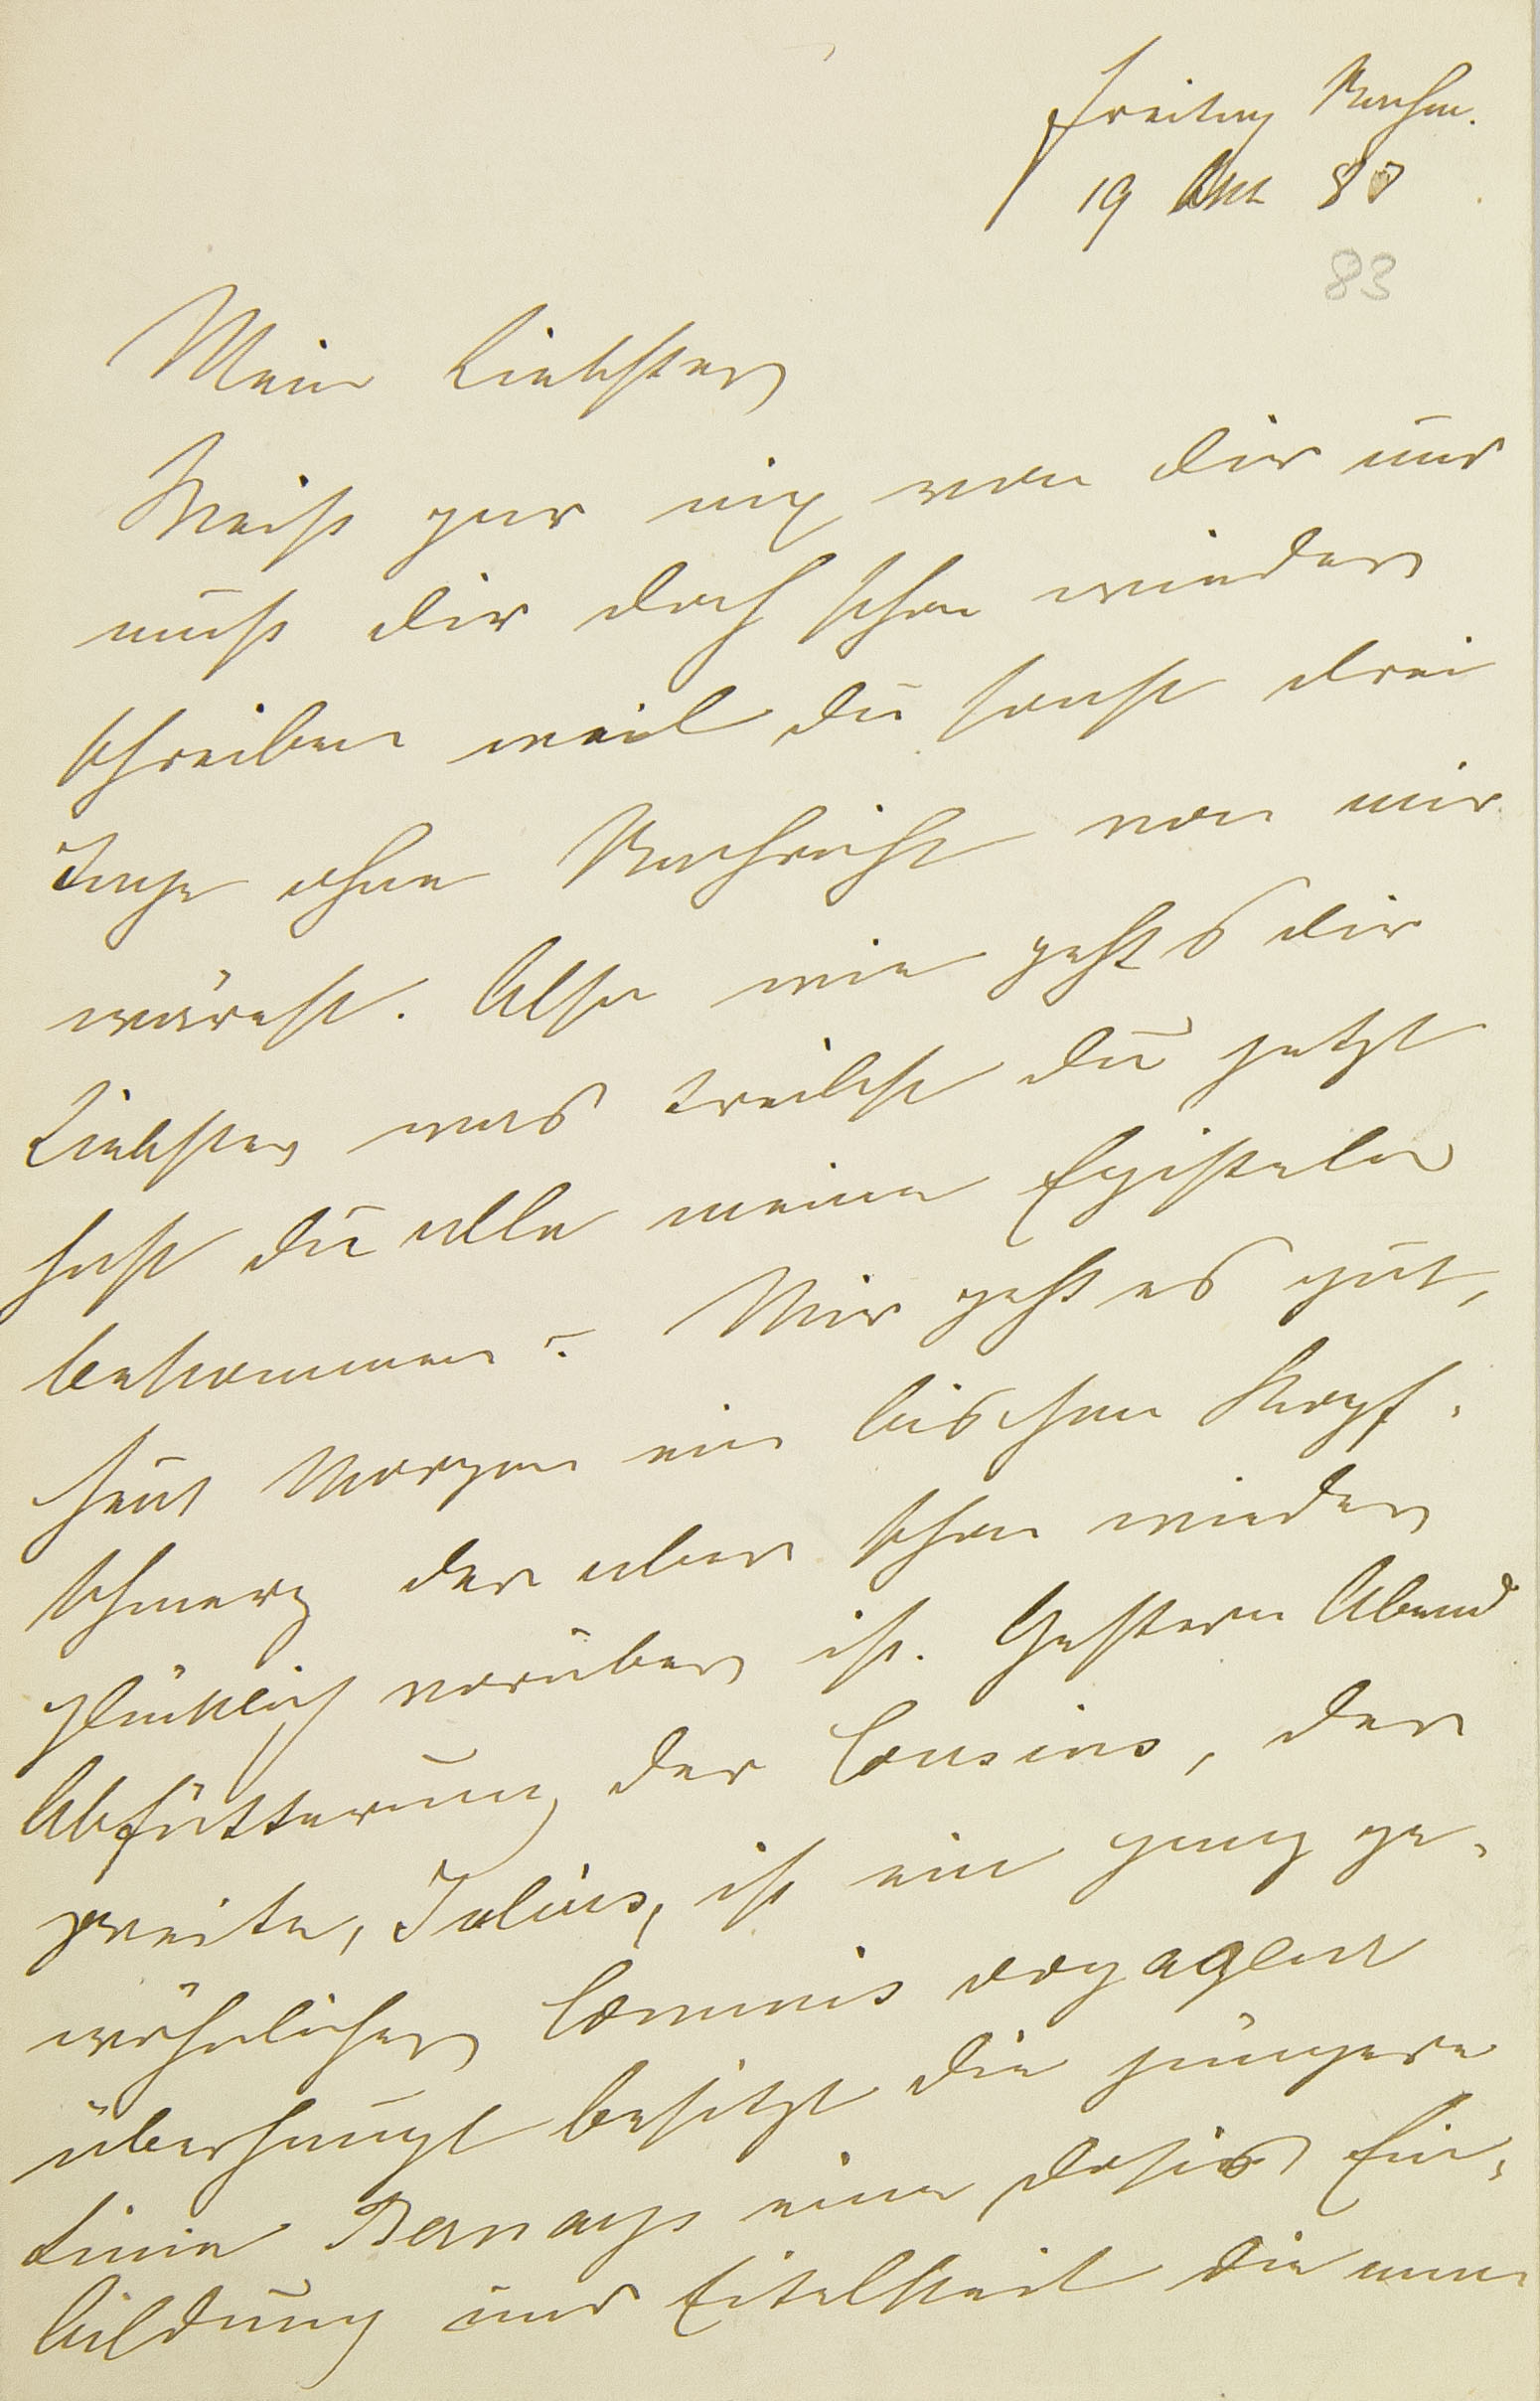 Freitag Nachm.
19 Okt 88
83
Mein Liebster
Weiß gar nix von dir und
muß dir doch schon wieder
schreiben weil du sonst drei
Tage ohne Nachricht von mir
wärest. Also wie geht's dir
Liebster was treibst du jetzt
hast du alle meine Episteln
bekommen? Mir geht es gut,
heut Morgen ein bischen Kopf-
schmerz der aber schon wieder
glücklich vorüber ist. Gestern Abend
Abfütterung der Cousins, der
zweite, Julius, ist ein ganz ge-
wöhnlicher Commis voyageur
überhaupt besitzt die jüngere
Linie Bernays eine Dosis Ein-
bildung und Eitelkeit die man